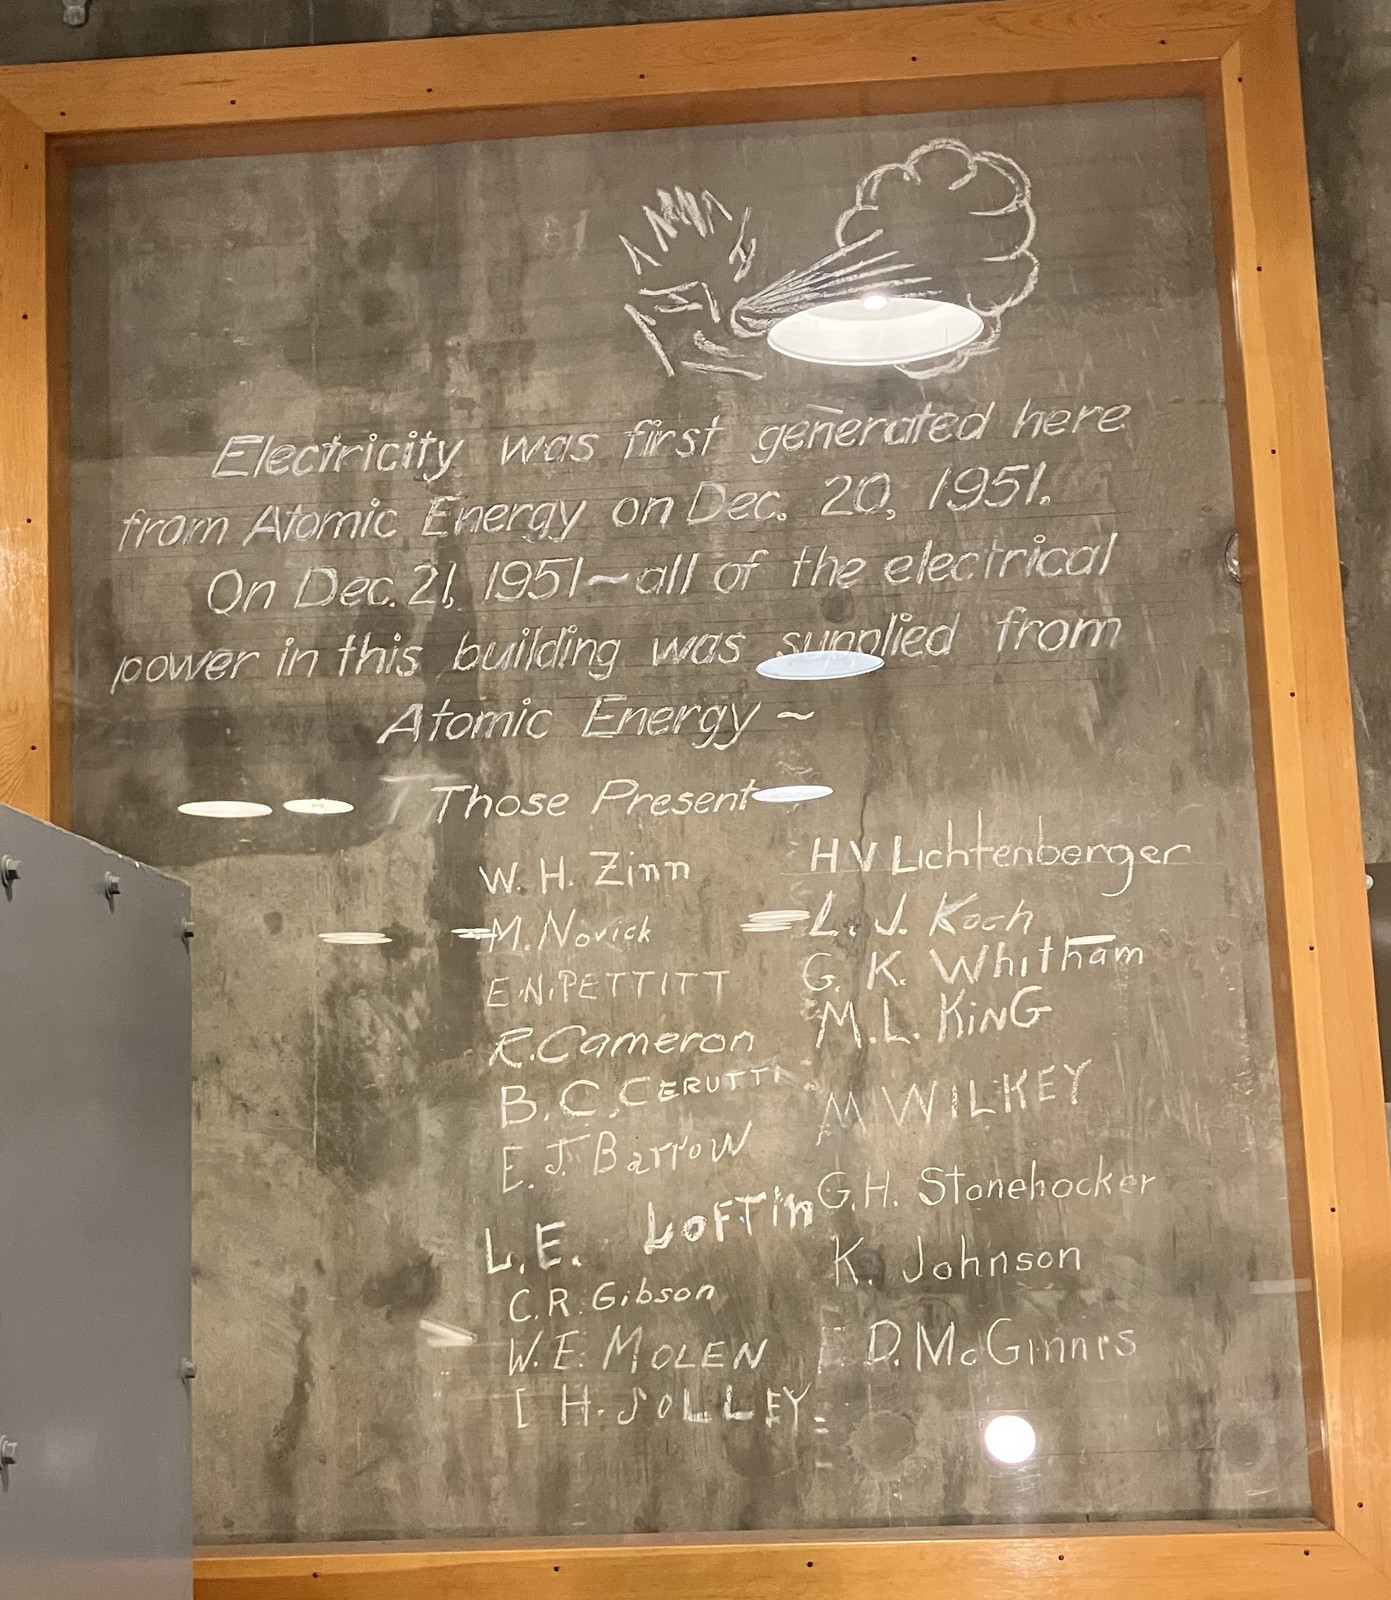 Electricity was first generated here
from Atomic Energy on Dec. 20, 1951.
On Dec. 21, 1951~all of the electrical
power in this building was supplied from
Atomic Energy ~
Those Present
W. H. Zinn
M. Novick
E.N.PETTITT
R.Cameron
B.C.CERUTTI
E. J. Barrow
L.E. LOFTin
C.R. Gibson
W.E. MOLEN
H. JOLLEY
H V Lichtenberger
L. J. Koch
G. K. Whitham
M.L. KiNG
M WILKEY
G.H. Stonehocker
K. Johnson
D. McGinnis